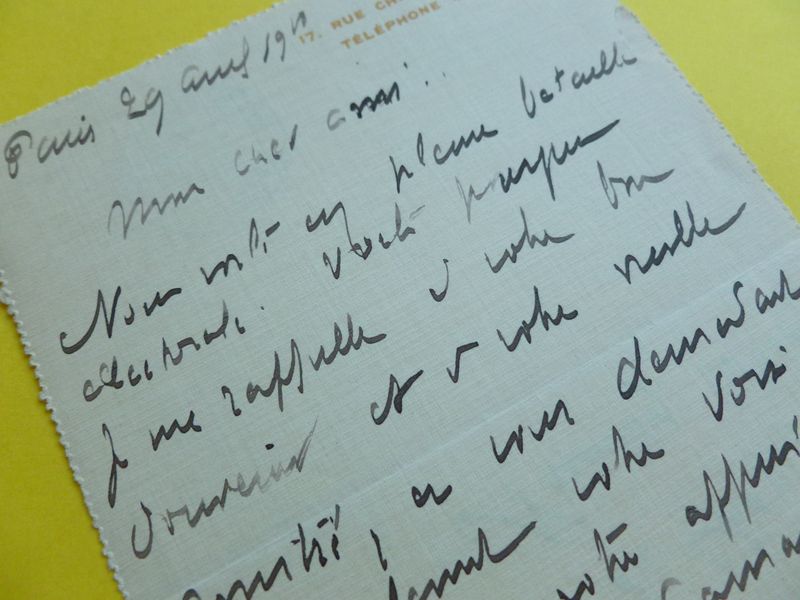 17, RUE CH
TÉLÉPHONE
Paris 29 avril 19
Mon cher ami.
Nous voilà en pleine bataille
électorale. Voilà pourquoi
je me rappelle à votre bon
souvenir et à votre vieille
amitié, en vous demandant
votre voix
votre appui